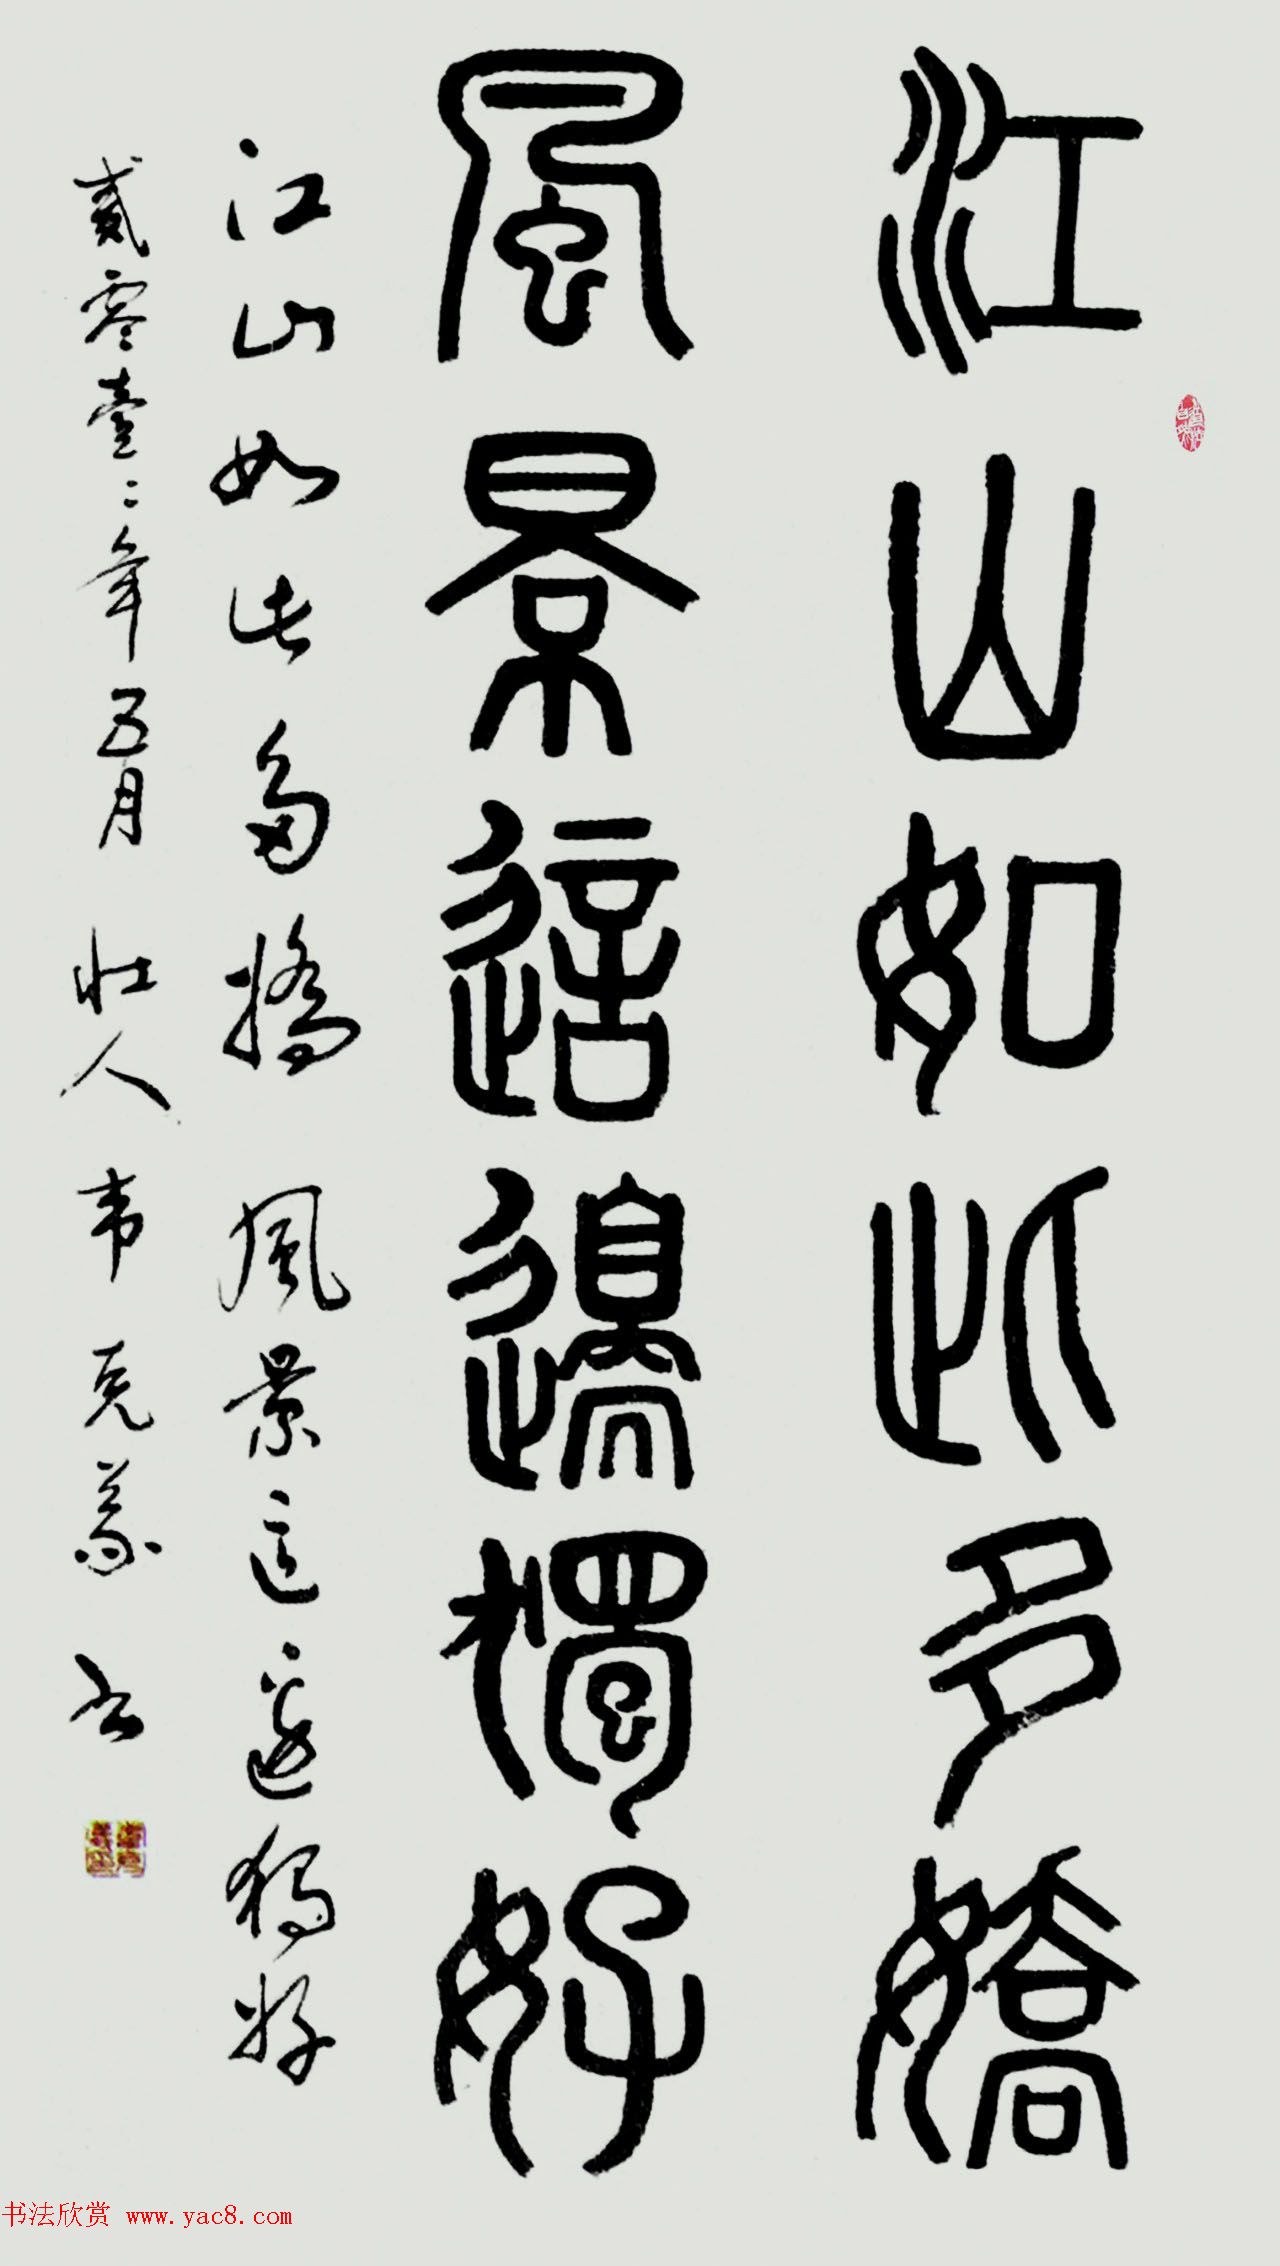 江山如此多嬌
風景這邊獨好
江山如此多嬌 風景這邊獨好
貳零壹二年五月 壮人 韦克义 书
书法欣赏 www.yac8.com